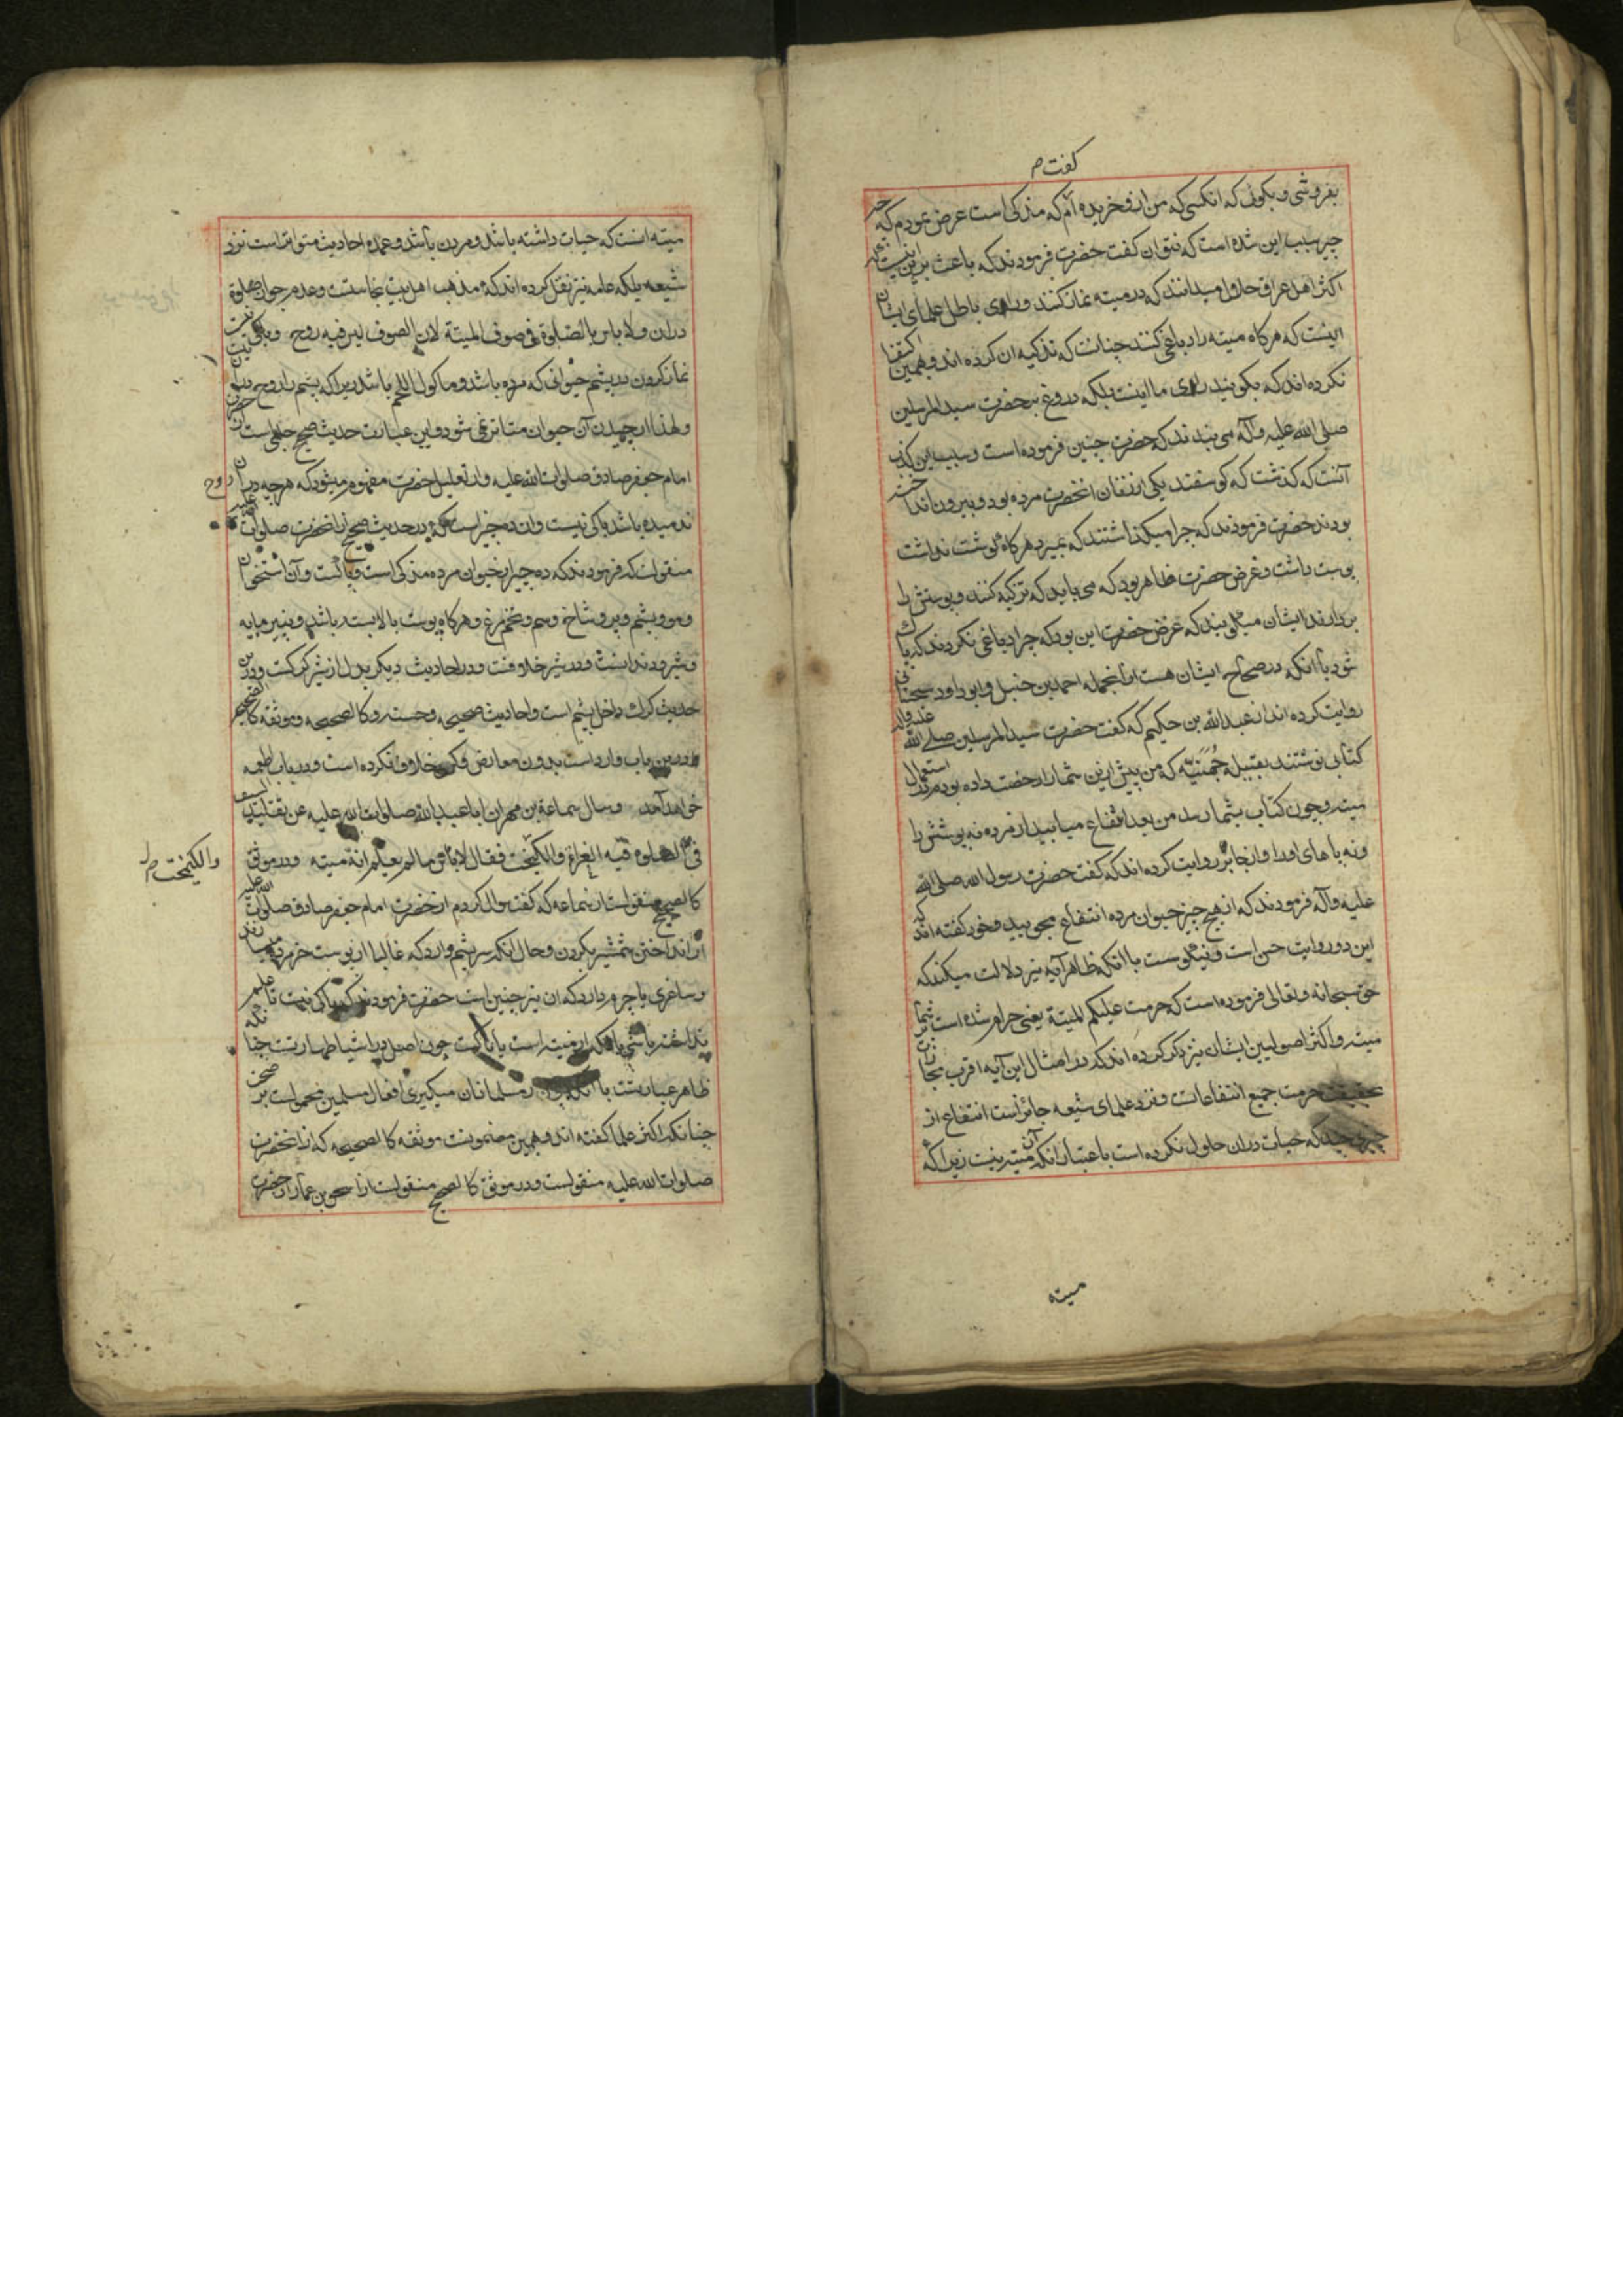 گفت م
بفروشی و بگوئی که انکسی که من ازو خریده ام که مذکی است عرض نمودم که چه
چیز سبب این شده است که نتوان گفت حضرت فرمودند که باعث برین اینست که
اکثر اهل عراق حلال میدانند که در میته نماز کنند و رای باطل علمای ایشان
اینست که هرگاه میته را دباغی کنند چنانست که تذکیه ان کرده اند و بهمین اکتفا
نکرده اند که بگویند رای ما اینست بلکه دروغ بحضرت سید المرسلین
صلی الله علیه وآله می بندند که حضرت چنین فرموده است و سبب این کذب
آنست که گذشت که گوسفند یکی از زنان انحضرت مرده بود و بیرون انداخته
بودند حضرت فرمودند که چرا میگذاشتند که بمیرد هرگاه گوشت نداشت
پوست داشت و غرض حضرت ظاهر بود که می باید که تزکیه کنند و پوستش را
بردارند ایشان میگویند که غرض حضرت این بود که چرا دباغی نکردند که پاک
شود با انکه در صحاح ایشان هست از انجمله احمد بن حنبل و ابو داود سجستانی
روایت کرده اند از عبدالله بن حکیم که گفت حضرت سید المرسلین صلی الله علیه وآله
کتابی نوشتند بقبیله جهنیه که من پیش ازین شما را رخصت داده بودم در استعمال
میته و چون کتاب بشما رسد من بعد انتفاع میابید از مرده نه پوستش را
و نه پاهای اورا و از جابر روایت کرده اند که گفت حضرت رسول الله صلی الله
علیه وآله فرمودند که از هیچ چیز حیوان مرده انتفاع مجویید و خود گفته اند که
این دو روایت حسن است و نیکوست با انکه ظاهر آیه نیز دلالت میکند که
حق سبحانه وتعالی فرموده است که حرمت علیکم المیتة یعنی حرام شده است بر شما
میته و اکثر اصولیین ایشان نیز ذکر کرده اند که در امثال این آیه اقرب مجازات
بحقیقت حرمت جمیع انتفاعات و نزد علمای شیعه جائز است انتفاع از
چیزی چند که حیات دران حلول نکرده است باعتبار انکه آن میته نیست زیرا که
میته
میته انست که حیات داشته باشد و مردن باشد و عمده احادیث متواتر است نزد
شیعه بلکه عامه نیز نقل کرده اند که مذهب اهل بیت نجاستست و عدم جواز صلوة
دران ولا باس بالصلوة فی صوف المیتة لان الصوف لیس فیه روح و باکی نیست
نماز کردن در پشم حیوانی که مرده باشد و ماکول اللحم باشد زیرا که پشم را روح نیست
ولهذا از چیدن آن حیوان متاثر نمی شود و این عبارت حدیث صحیح حلبی است از حضرت
امام جعفر صادق صلوات الله علیه و از تعلیل حضرت مفهوم میشود که هرچه دران روح
ندمیده باشد باکی نیست و ان ده چیز است که در حدیث صحیح از انحضرت صلوات الله علیه
منقولست که فرمودند که ده چیز از حیوان مرده مذکی است و پاکست و آن استخوان
و مو و پشم و پر و شاخ و سم و تخم مرغ و هرگاه پوست بالا بسته باشد و پنیر مایه
و شیر و دندانست و در شیر خلافست و در احادیث دیگر بدل از شیر کرکست و درین
حدیث کرک داخل پشم است و احادیث صحیحه و حسنه و کالصحیحه و موثقه کالصحیح
درین باب وارد است بدون معارض و کسی خلاف نکرده است و در باب اطعمه
خواهد آمد وسال سماعة بن مهران اباعبدالله صلوات الله علیه عن تقلید السیف
فی الصلوة فیه الغراء والکیمخت فقال لاباس مالم یعلم انه میته و در موثق
والکیمخت م
کالصحیح منقولست از سماعه که گفت سوال کردم از حضرت امام جعفر صادق صلوات الله علیه
از انداختن شمشیر بگردن و حال انکه سریشم دارد که غالبا از پوست خر مرده میسازند
و ساغری یا چرم دارد که ان نیز چنین است حضرت فرمودند که باکی نیست تا علم
نداشته باشی با انکه از میته است یا ناپاکست چون اصل در اشیا طهارتست چنانکه
ظاهر عبارتست با انکه چون از مسلمانان میگیری افعال مسلمین محمولست بر صحت
چنانکه اکثر علما گفته اند و همین مضمونست موثقه کالصحیحه که از انحضرت
صلوات الله علیه منقولست و در موثق کالصحیح منقولست از اسحق بن عمار از حضرت